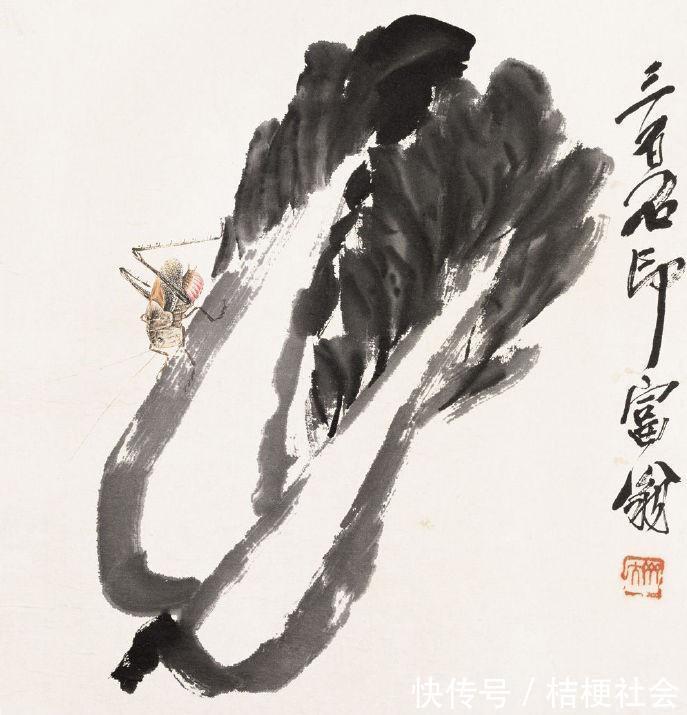 三百石印富翁
快传号 / 桔梗社会